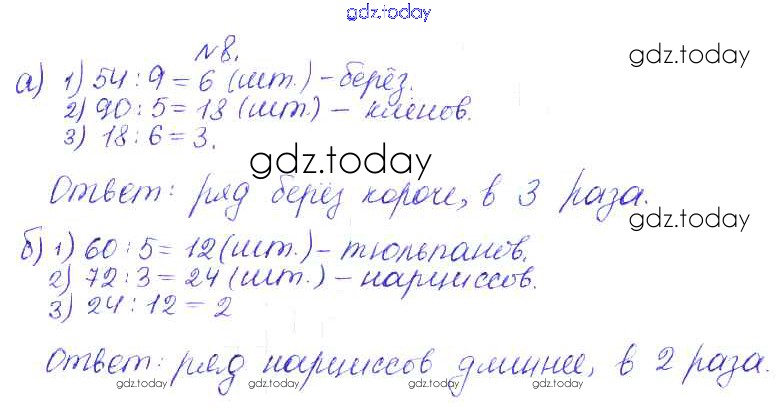 gdz.today
№8.
gdz.today
а) 1) 54 : 9 = 6 (шт.) – берёз.
2) 90 : 5 = 18 (шт.) – клёнов.
3) 18 : 6 = 3.
gdz.today
Ответ: ряд берёз короче, в 3 раза.
gdz.today
б) 1) 60 : 5 = 12 (шт.) – тюльпанов.
2) 72 : 3 = 24 (шт.) – нарциссов.
3) 24 : 12 = 2
Ответ: ряд нарциссов длиннее, в 2 раза.
gdz.today gdz.today gdz.today gdz.today